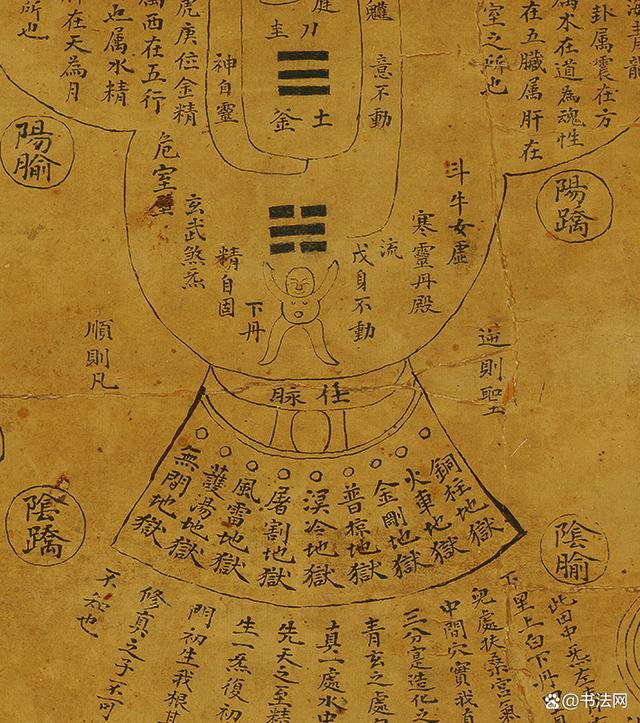 青龍
卦属震在方
属水在道為魂性
在五臟属肝在
室之所也
意不動
圭
土釜
神自靈
虎庚位金精
属西在五行
也属水精
肝在天為月
所也
陽蹻
陽腧
斗牛女虛
寒靈丹殿
流
戊身不動
下丹
精自固
玄武煞炁
危室壁
逆則聖
順則凡
任脉
銅柱地獄
火車地獄
金剛地獄
普掠地獄
溟冷地獄
屠割地獄
風雷地獄
護湯地獄
無間地獄
陰腧
陰蹻
此田中炁左
下里上白下丹
兒處扶桑宮氣
中間穴實我自
三分寔造化之
青玄之處
真一處水中
先天之至精
生一炁復初
門初生我根其
修真之子不可
不知也
书法网